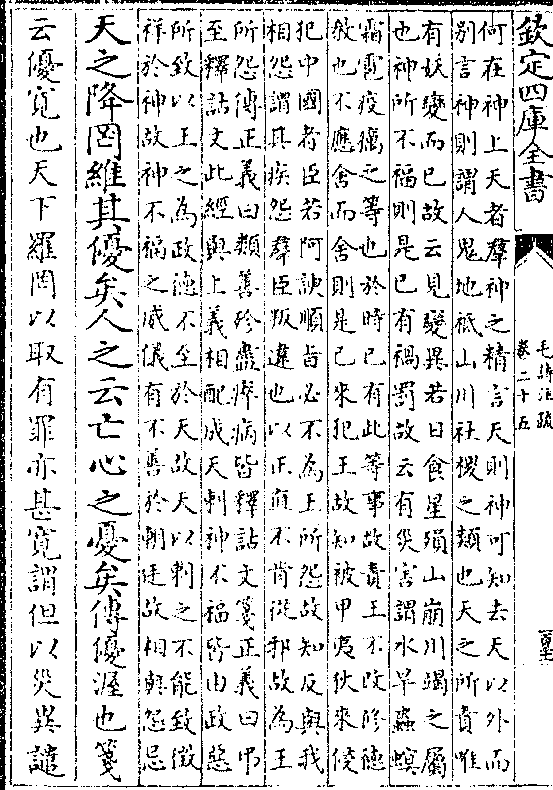 欽定四庫全書
毛詩注疏
卷二十五
何在神上天者羣神之精言天則神可知去天以外而
別言神則謂人鬼地祇山川社稷之類也天之所責唯
有妖變而已故云見變異若日食星殞山崩川竭之屬
也神所不福則是已有禍罰故云有災害謂水旱蟲螟
霜雹疫癘之等也於時已有此等事故責王不改修德
敎也不應舍而舍則是已來犯王故知被甲夷狄來侵
犯中國者臣若阿諛順旨必不為王所怨故知反與我
相怨謂其疾怨羣臣叛違也以正直不肯從邪故為王
所怨傳正義曰類善殄盡瘁病皆釋詁文箋正義曰弔
至釋詁文此經與上義相配成天刺神不福皆由政惡
所致以王之為政德不至於天故天以刺之不能致徵
祥於神故神不福之威儀有不善於朝廷故相與怨忌
天之降罔維其優矣人之云亡心之憂矣傳優渥也箋
云優寛也天下羅罔以取有罪亦甚寛謂但以災異譴